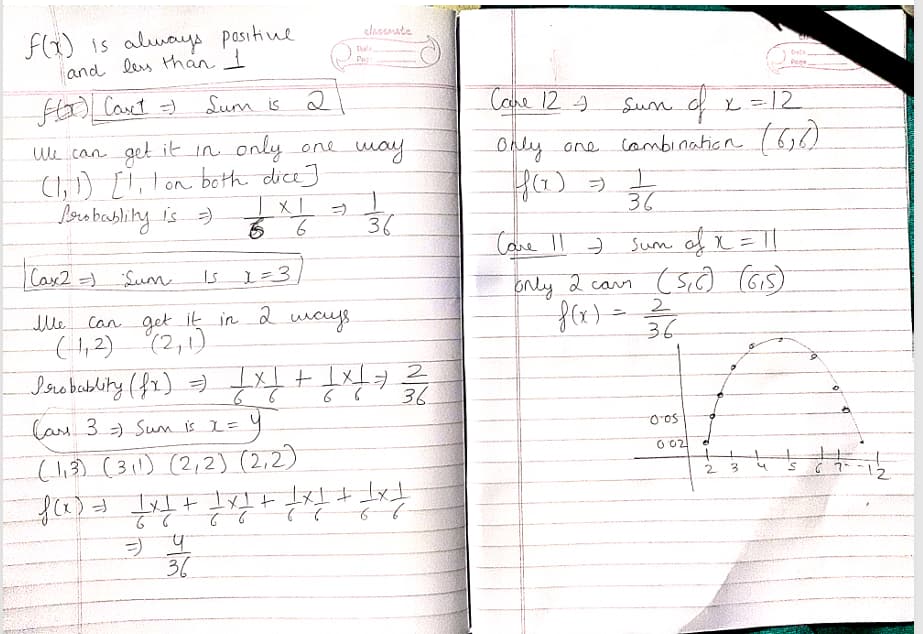 classmate
Date
Page
f(x) is always positive
and less than 1
f(x) Case 1 => Sum is 2
We can get it in only one way
(1,1) [1,1 on both dice]
Probablity is => 1/6 × 1/6 => 1/36
Case2 => Sum is x=3
We can get it in 2 ways
(1,2) (2,1)
Probablity (fx) => 1/6 × 1/6 + 1/6 × 1/6 => 2/36
Case 3 => Sum is x = 4
(1,3) (3,1) (2,2) (2,2)
f(x) => 1/6 × 1/6 + 1/6 × 1/6 + 1/6 × 1/6 + 1/6 × 1/6
=> 4/36
Date
Page
Case 12 → sum of x = 12
Only one combination (6,6)
f(x) => 1/36
Case 11 → sum of x = 11
only 2 (5,6) (6,5)
f(x) = 2/36
0.05
0.02
2 3 4 5 6 7 - - 12